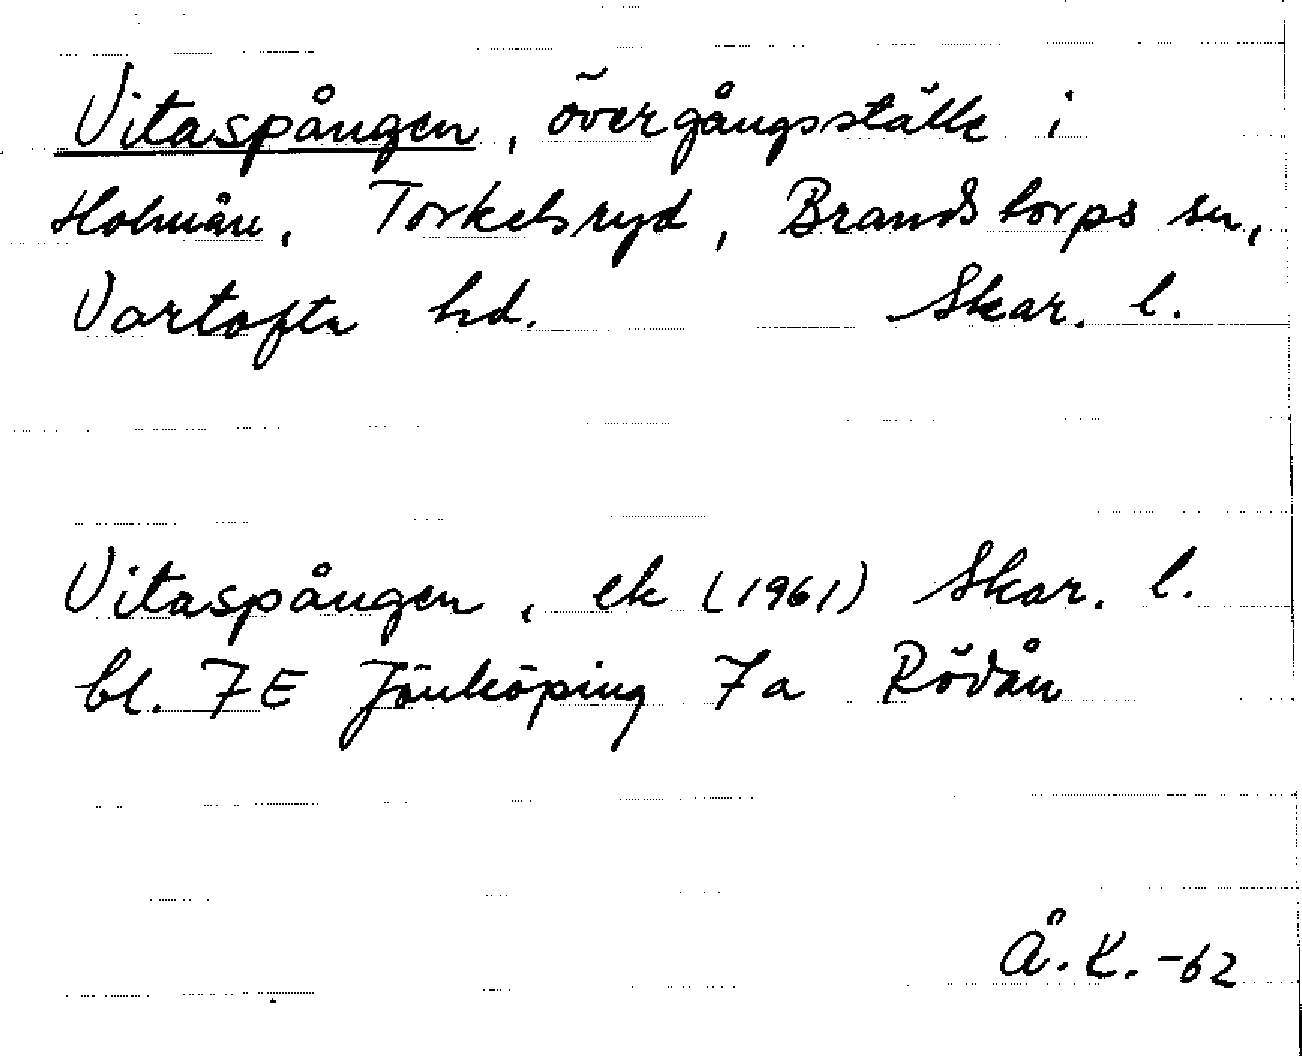 Vitaspången, övergångsställe i
Holmån, Torkelsryd, Brandstorps sn,
Vartofta hd. Skar. l.
Vitaspången, ek (1961) Skar. l.
bl. 7E Jönköping 7a Rödån
Å.K. -62